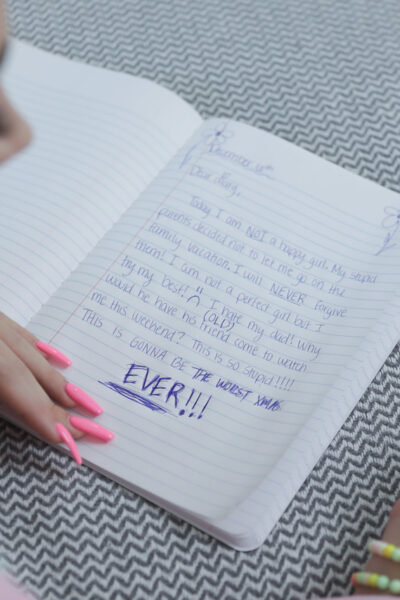 December 14th
Dear diary,
Today I am NOT a happy girl. My stupid
parents decided not to let me go on the
family vacation. I will NEVER forgive
them! I am not a perfect girl but I
try my best! I hate my dad! Why
would he have his (OLD) friend come to watch
me this weekend? This is so stupid!!!!
THIS IS GONNA BE THE WORST XMAS
EVER!!!